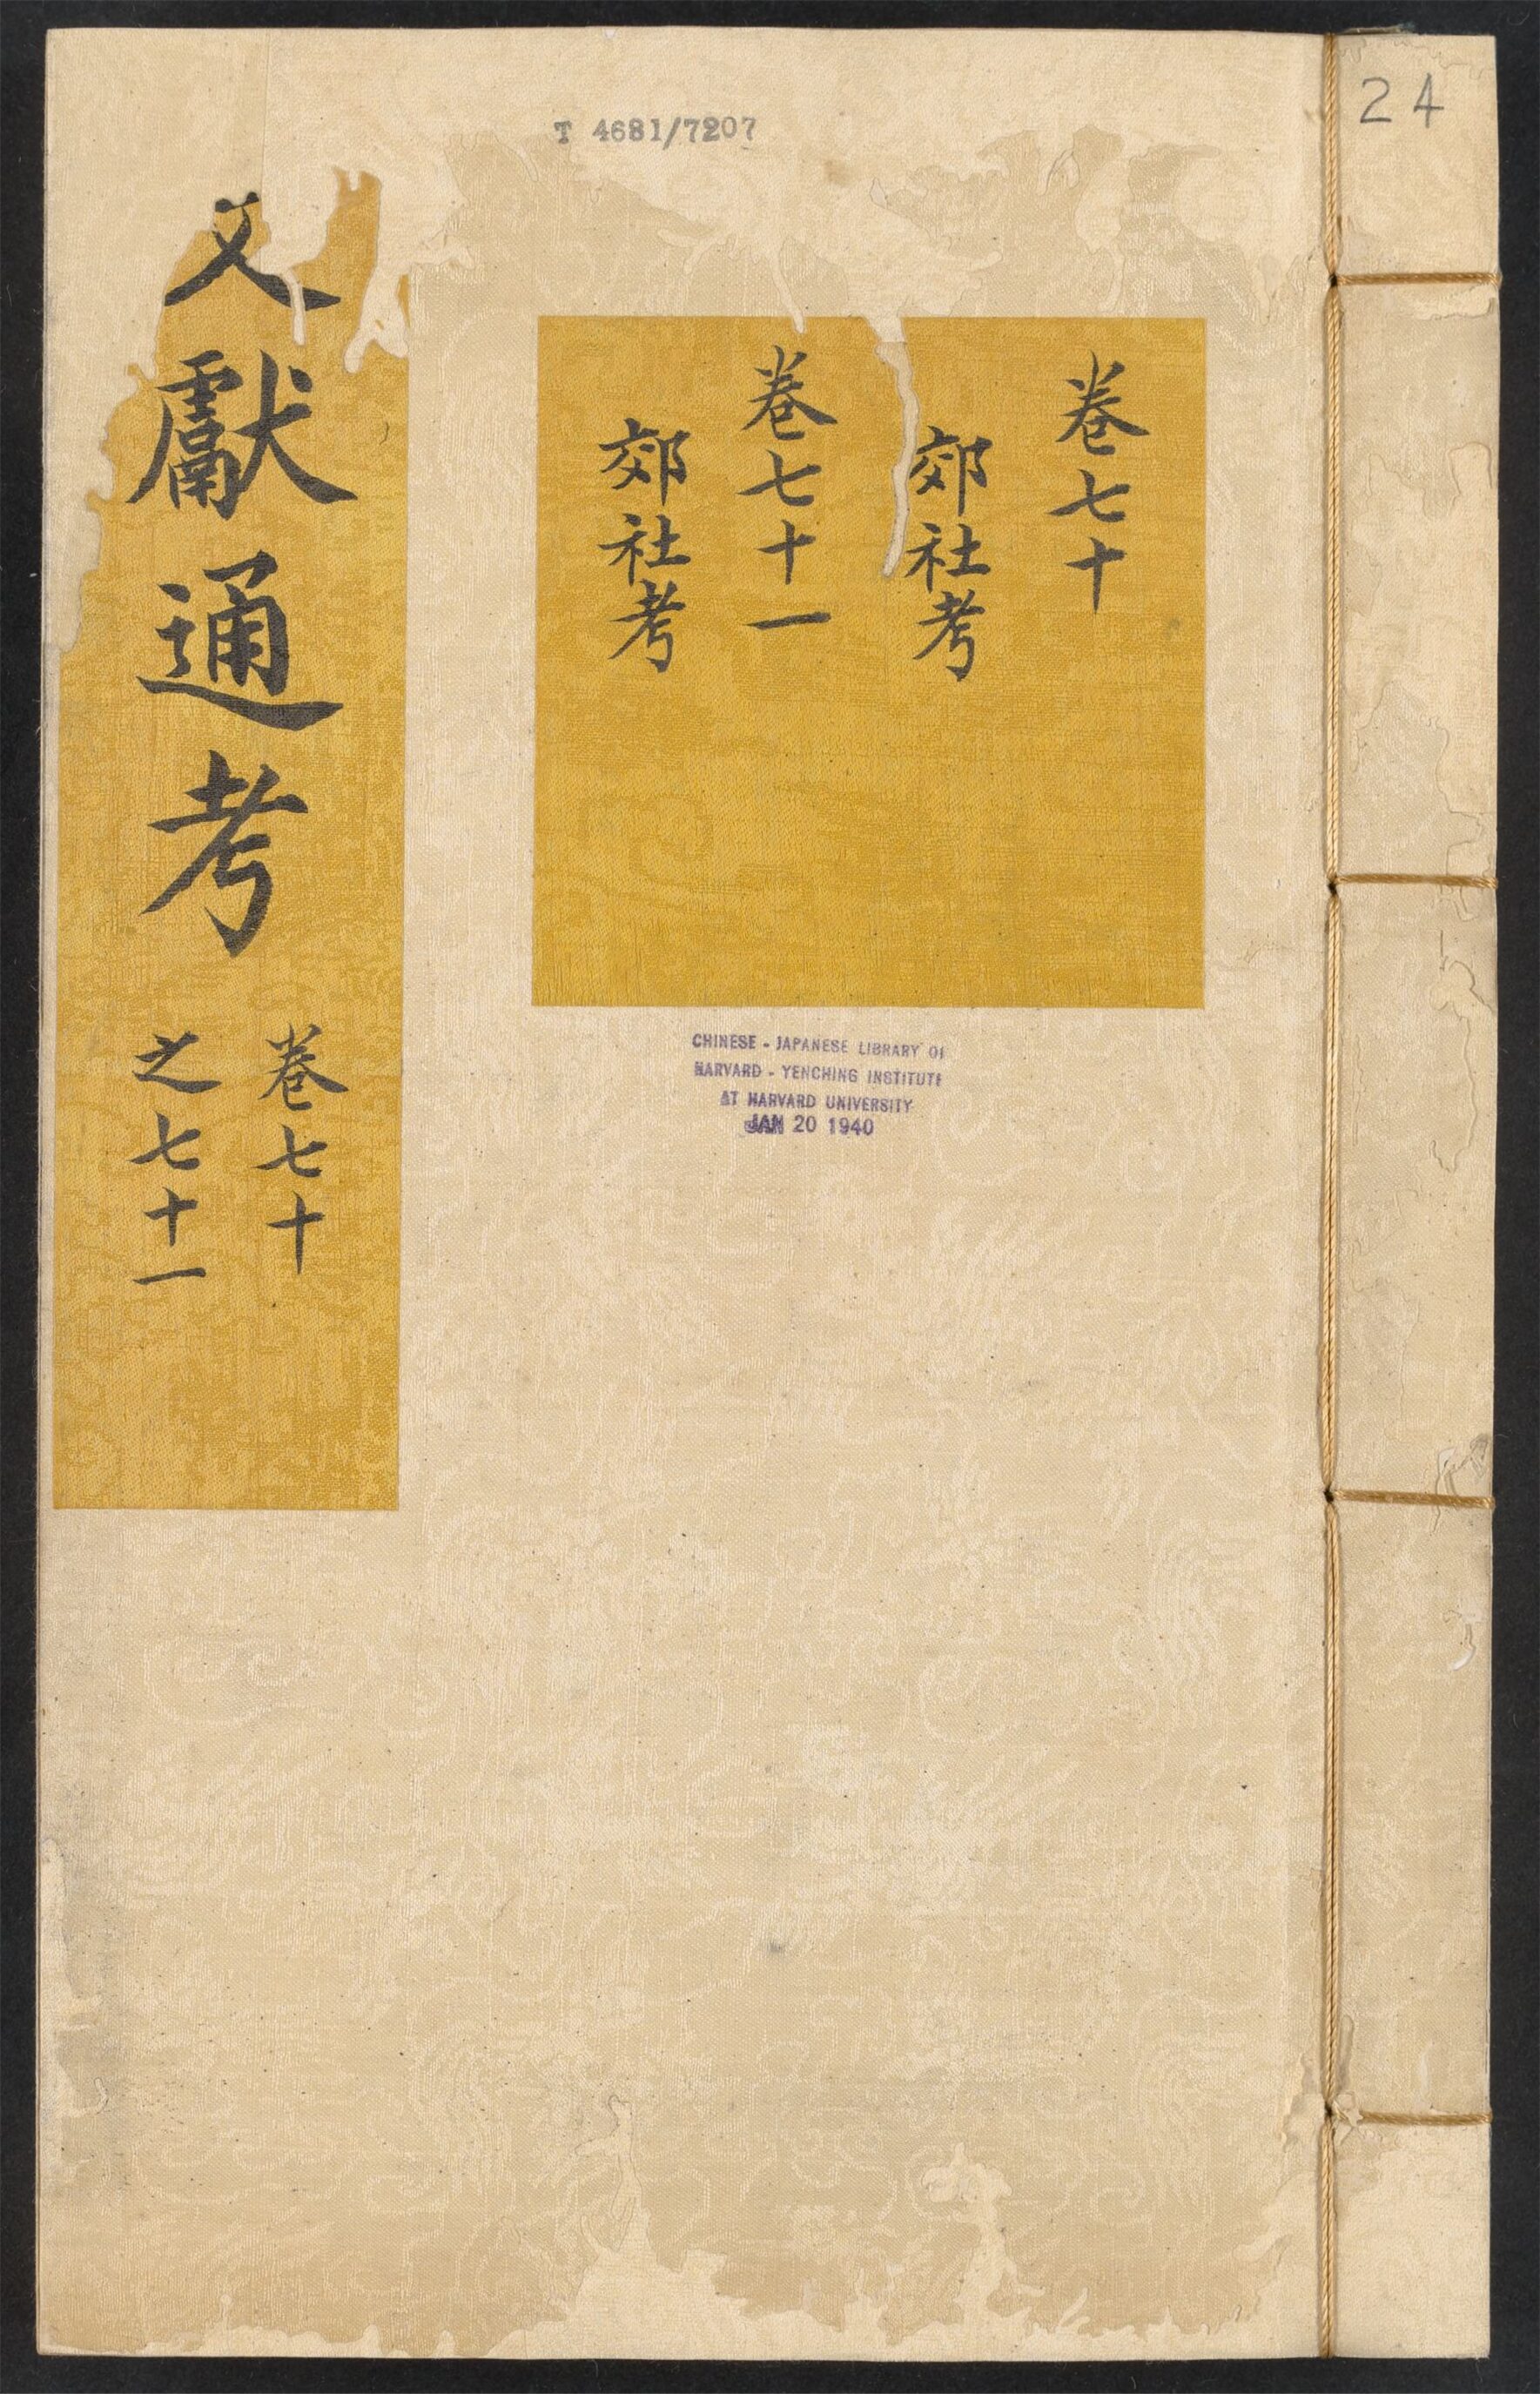 24
T 4681/7207
卷七十
郊社考
卷七十一
郊社考
文獻通考
卷七十
之七十一
CHINESE - JAPANESE LIBRARY OF
HARVARD - YENCHING INSTITUTE
AT HARVARD UNIVERSITY
JAN 20 1940